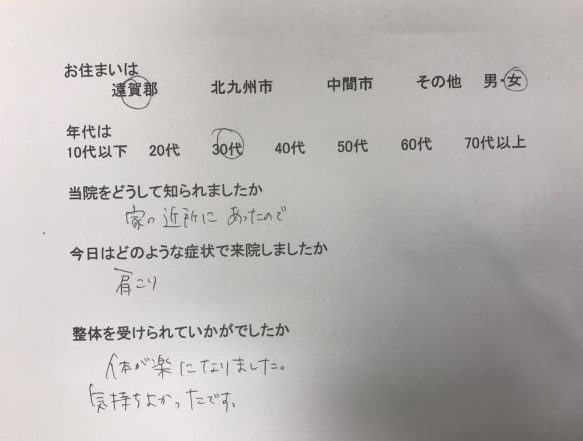 お住まいは
遠賀郡 北九州市 中間市 その他 男・女
年代は
10代以下 20代 30代 40代 50代 60代 70代以上
当院をどうして知られましたか
家の近所にあったので
今日はどのような症状で来院しましたか
肩こり
整体を受けられていかがでしたか
体が楽になりました。
気持ちよかったです。